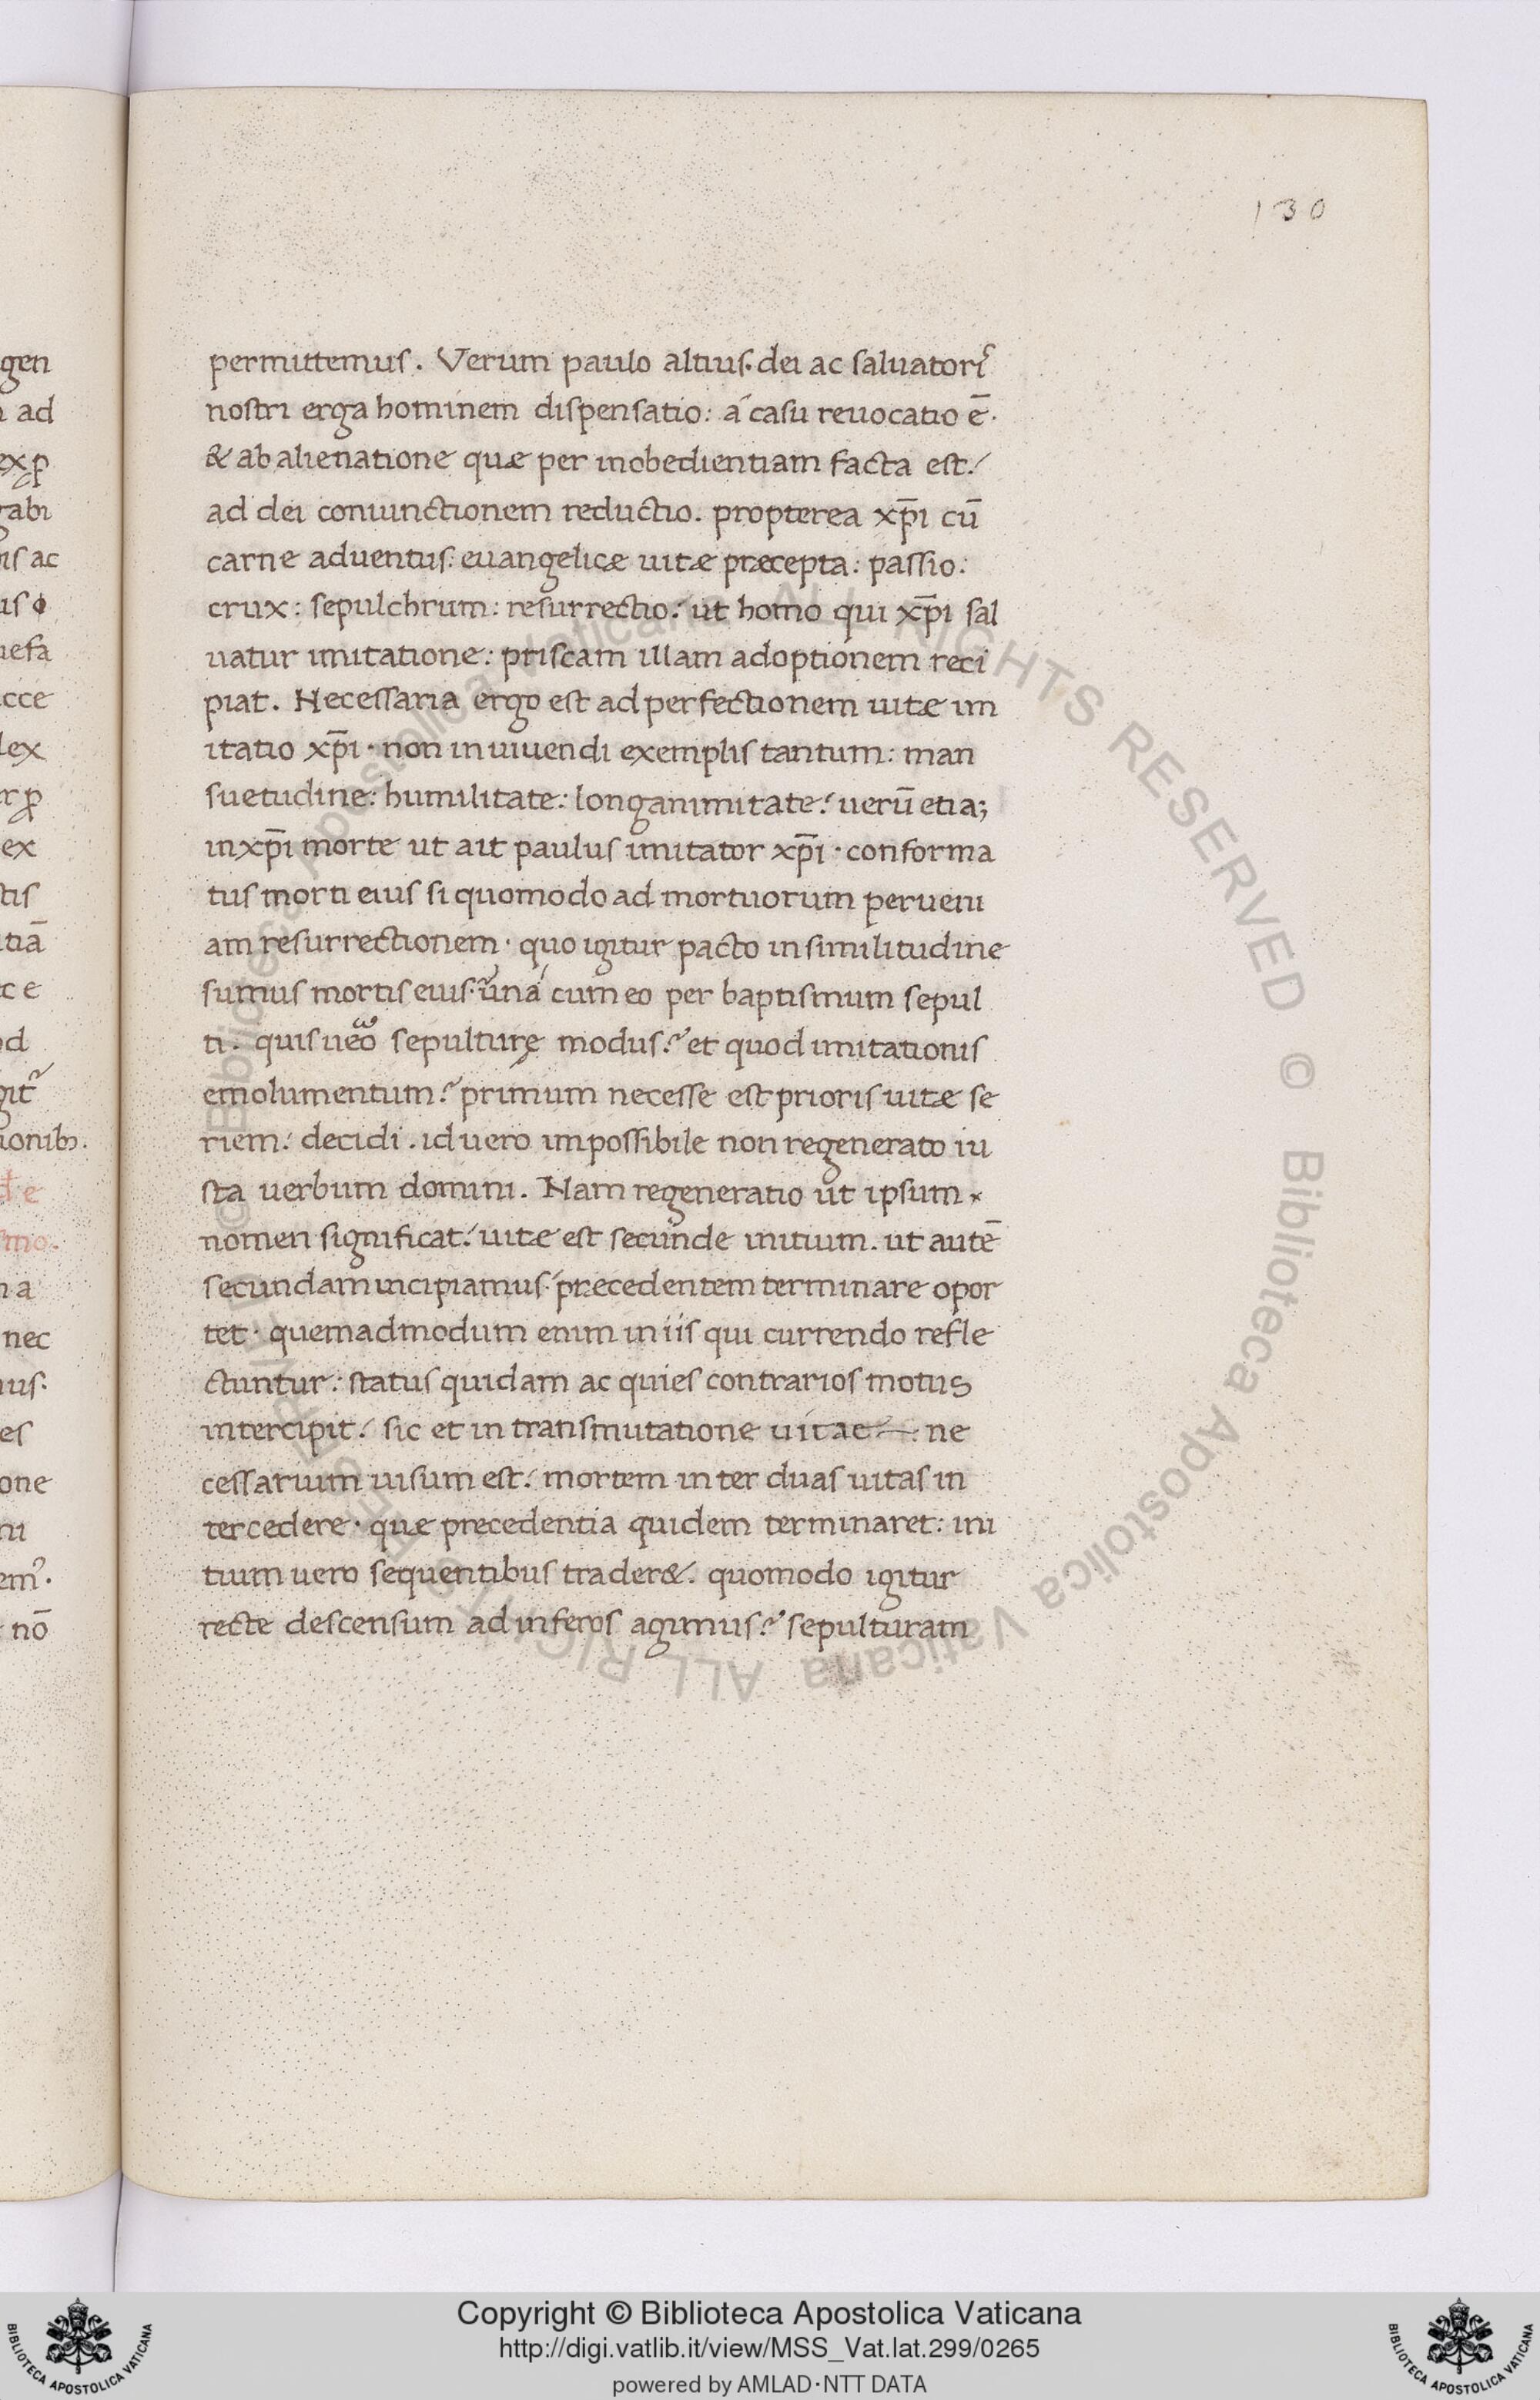 130
permittemus. Verum paulo altius. dei ac saluatoris
nostri erga hominem dispensatio: á casu reuocatio ē.
& ab alienatione quæ per inobedientiam facta est:
ad dei coniunctionem reductio. propterea xp̄i cū
carne aduentus: euangelicæ uitæ præcepta: passio:
crux: sepulchrum: resurrectio: ut homo qui xp̄i sal
uatur imitatione: priscam illam adoptionem reci
piat. Necessaria ergo est ad perfectionem uitæ im
itatio xp̄i · non in uiuendi exemplis tantum: man
suetudine: humilitate: longanimitate: uerū etia;
in xp̄i morte ut ait paulus imitator xp̄i · conforma
tus morti eius si quomodo ad mortuorum perueni
am resurrectionem · quo igitur pacto in similitudine
sumus mortis eius. uná cum eo per baptismum sepul
ti. quis ueo sepulturę modus? et quod imitationis
emolumentum? primum necesse est prioris uitæ se
riem: decidi. id uero impossibile non regenerato iu
sta uerbum domini. Nam regeneratio ut ipsum
nomen significat: uitæ est secunde initium. ut autē
secundam incipiamus: precedentem terminare opor
tet · quemadmodum enim in iis qui currendo refle
ctuntur: status quidam ac quies contrarios motus
intercipit: sic et in transmutatione uitae ne
cessarium uisum est: mortem inter duas uitas in
tercedere · quæ precedentia quidem terminaret: ini
tium uero sequentibus trader&. quomodo igitur
recte descensum ad inferos agimus? sepulturam
gen
ad
exp
rabi
is ac
us
uefa
cce
lex
ex
tis
tiā
ce
od
git
ionib.
e
smo.
na
nec
us.
es
one
ni
em.
nō
© Biblioteca Apostolica Vaticana ALL RIGHTS RESERVED © Biblioteca Apostolica Vaticana ALL RIGHTS RESERVED
Copyright © Biblioteca Apostolica Vaticana
http://digi.vatlib.it/view/MSS_Vat.lat.299/0265
powered by AMLAD·NTT DATA
BIBLIOTECA APOSTOLICA VATICANA
BIBLIOTECA APOSTOLICA VATICANA